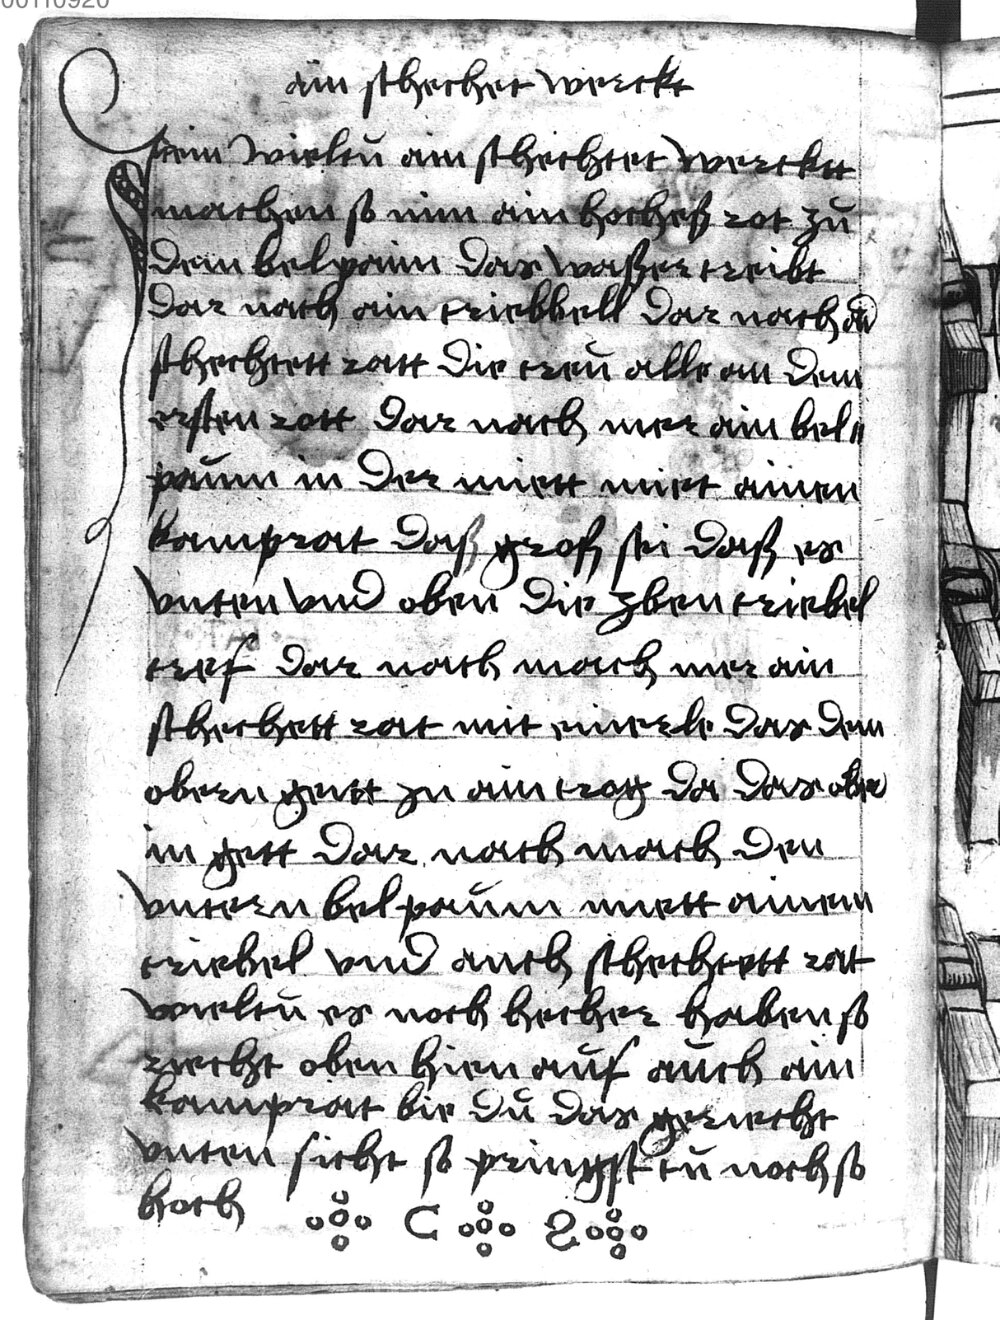 00110920
ain schechet werckt
Item wieltu ain schechtet werckt
machen so nim ain hoches rat zu
dem belpaim das waser treibt
dar nach ain triebbell dar nach ain
schechtett ratt die treu alle an dem
ersten rott dar nach mer ain bel
paum in der miett miet ainen
kamprat daß groß sei daß es
vnten vnd oben die zben triebel
tref dar nach mach mer ain
schechett rat mit das dem
obern gett zu ain trog da das ober
in gett dar nach mach den
vntern belpaum miett ainem
triebel vnd auch schechtett rat
wieltu es noch hecher haben so
riecht oben hien auf auch ain
kamprat bie du das geriecht
vnten sicht so pringst tu noch so
hoch